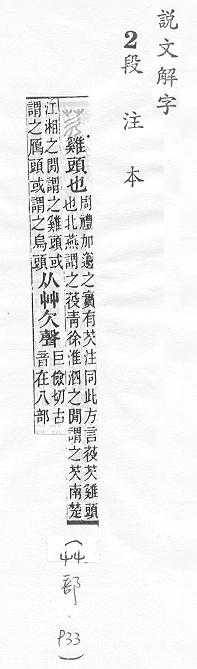 說文解字
2段注本
芡
雞頭也
周禮加籩之實有芡注同此方言䓈芡雞頭
也北燕謂之䓈青徐淮泗之閒謂之芡南楚
江湘之閒謂之雞頭或
謂之鴈頭或謂之烏頭
从艸欠聲
巨儉切古
音在八部
(艸部.P33)